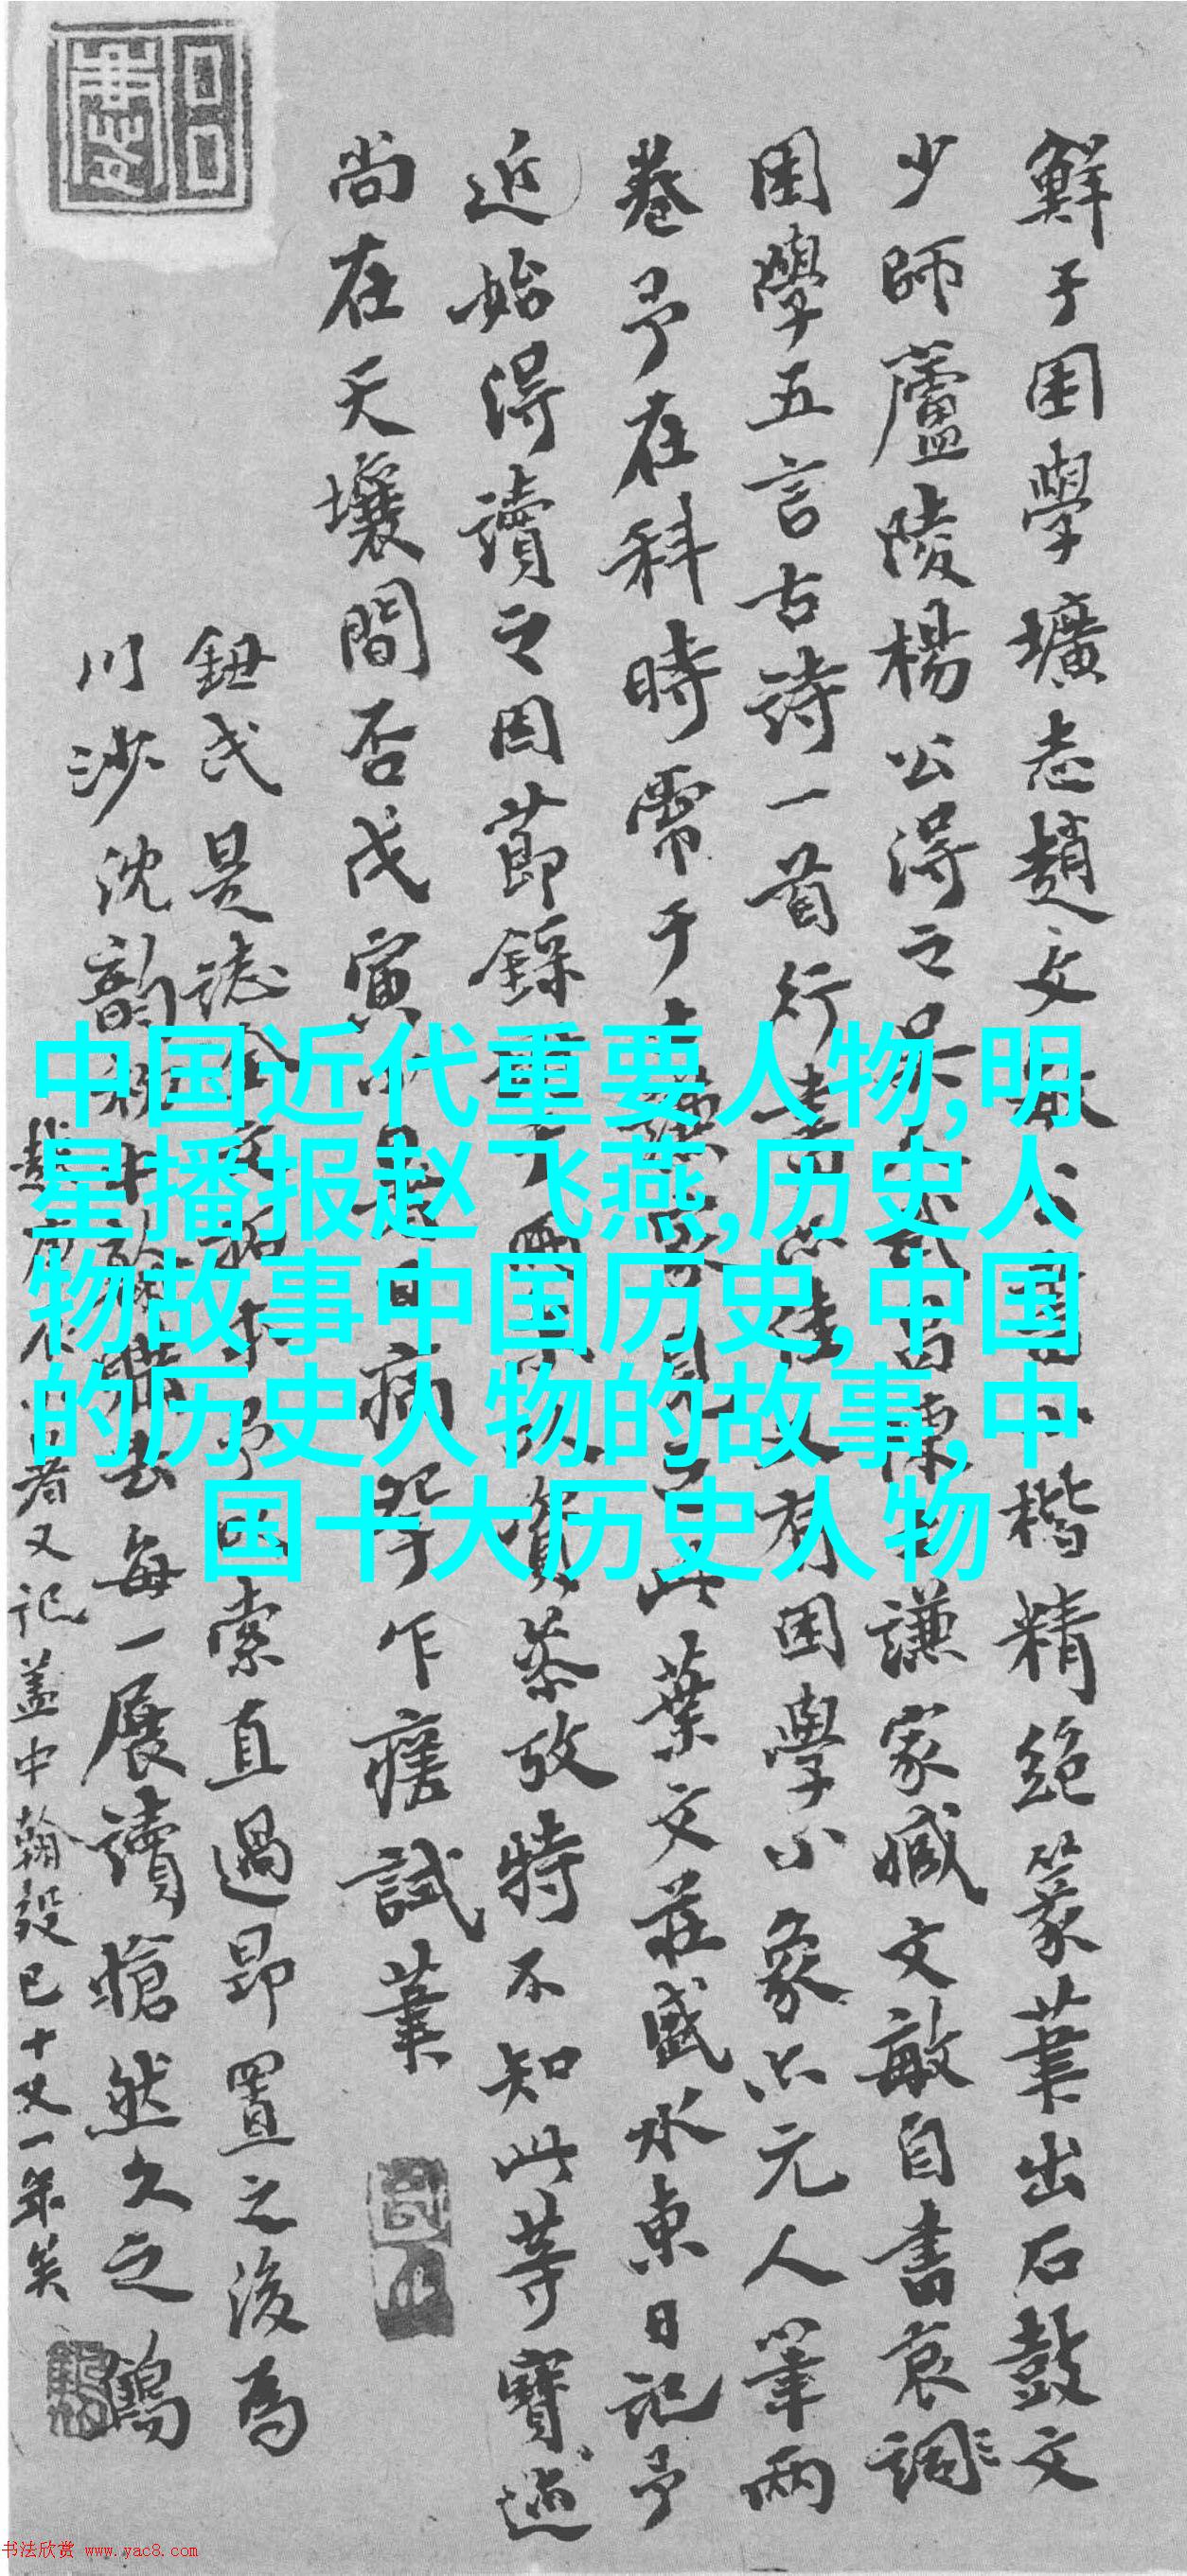 鮮于困學壙志趙文敏公書小楷精絕篆筆出石鼓文
少師蘆陵楊公得之吳
謙家臧文敏自書哀詞
困學五言古詩一首行書
有困學小象六元人筆兩
卷予在科時常于
葉文莊盛水東日記予
近始得讀之因節錄
資恭攷特不知此等寶迹
尚在天壤間否戊寅
目病
乍瘥試筆
鈕氏是誌
索直過昂置之後為
川沙沈韵初中翰購去每一展讀愴然久之鶴
者又記蓋中翰歿已十又一年矣
中国近代重要人物,明
星播报赵飞燕,历史人
物故事中国历史,中国
的历史人物的故事,中
国十大历史人物
书法欣赏 www.yac8.com